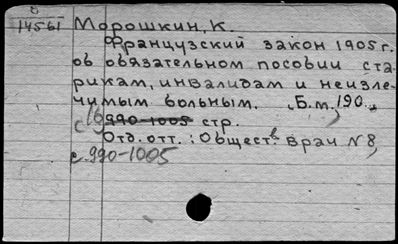 14561 Морошкин, К.
Французский закон 1905 г.
об обязательном пособии ста-
рикам, инвалидам и неизле-
чимым больным. Б.м., 190.
с. 16 990-1005 стр.
Отд. отт.: Обществ. врач № 8,
с. 990-1005